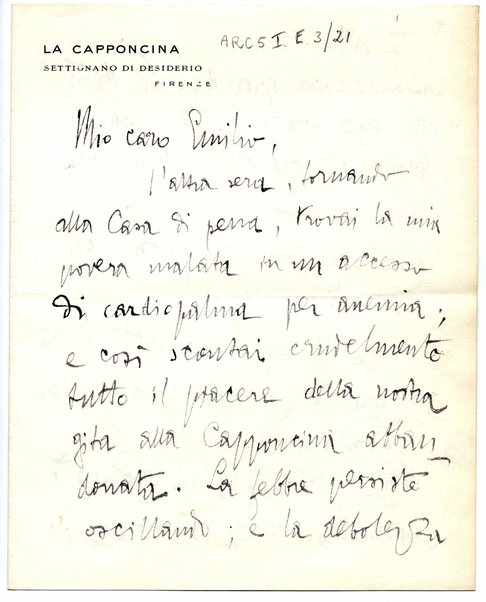 ARC 5 I. E. 3/21
LA CAPPONCINA
SETTIGNANO DI DESIDERIO
FIRENZE
Mio caro Emilio,
l'altra sera, tornando
alla Casa di pena, trovai la mia
povera malata in un accesso
di cardiopalma per anemia;
e così scontai crudelmente
tutto il piacere della nostra
gita alla Capponcina abban
donata. La febbre persiste
oscillando; e la debolezza